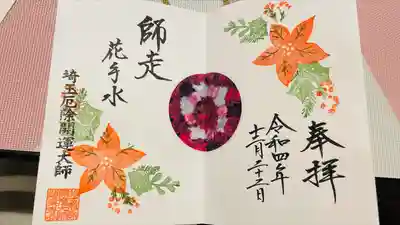 奉拝
令和四年
十二月二十二日
師走
花手水
埼玉厄除開運大師